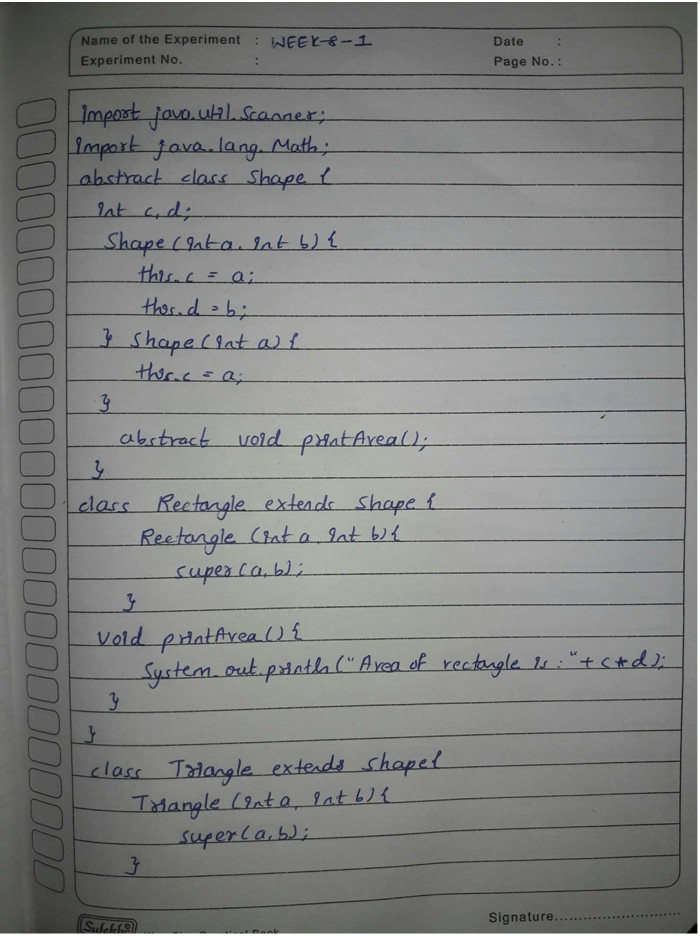 Name of the Experiment : WEEK-8-1
Date :
Experiment No. :
Page No. :
Import java.util.Scanner;
Import java.lang.Math;
abstract class Shape {
int c, d;
Shape (int a, int b) {
this.c = a;
this.d = b;
} Shape (int a) {
this.c = a;
}
abstract void printArea();
}
class Rectangle extends Shape {
Rectangle (int a, int b) {
super(a,b);
}
void printArea() {
System.out.println ("Area of rectangle is : " + c * d);
}
}
class Triangle extends Shape {
Triangle (int a, int b) {
super(a,b);
}
Signature